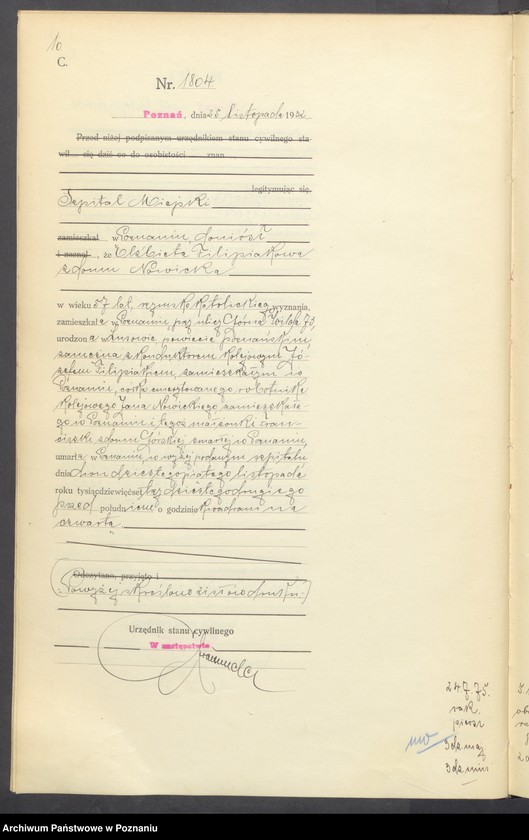 10
C.
Nr. 1804
Poznań, dnia 25 listopada 1932
Przed niżej podpisanym urzędnikiem stanu cywilnego sta-
wił się dziś co do osobistości znan
legitymując się
Szpital Miejski
zamieszkał w Poznaniu, doniósł
i zeznał, że Elżbieta Filipiakowa
z domu Nowicka
w wieku 57 lat, rzymsko katolickiego wyznania,
zamieszkała w Poznaniu przy ulicy Górna Wilda 73,
urodzona w powiecie poznańskim,
zamężna z konduktorem kolejowym Jó-
zefem Filipiakiem, zamieszkałym w
Poznaniu, córka emerytowanego robotnika
kolejowego Jana Nowickiego zamieszkałe-
go w Poznaniu i tegoż małżonki Fran-
ciszki z domu Górskiej zmarłej w Poznaniu,
umarła w Poznaniu w wyżej podanym szpitalu
dnia dwudziestego piątego listopada
roku tysiąc dziewięćset trzydziestego drugiego
przed południem o godzinie
czwarta
Odczytano, przyjęto i
Powyżej skreślono druku
Urzędnik stanu cywilnego
W zastępstwie
24.7.75.
rak.
piersi
3 dz maj
3 dz min
Archiwum Państwowe w Poznaniu